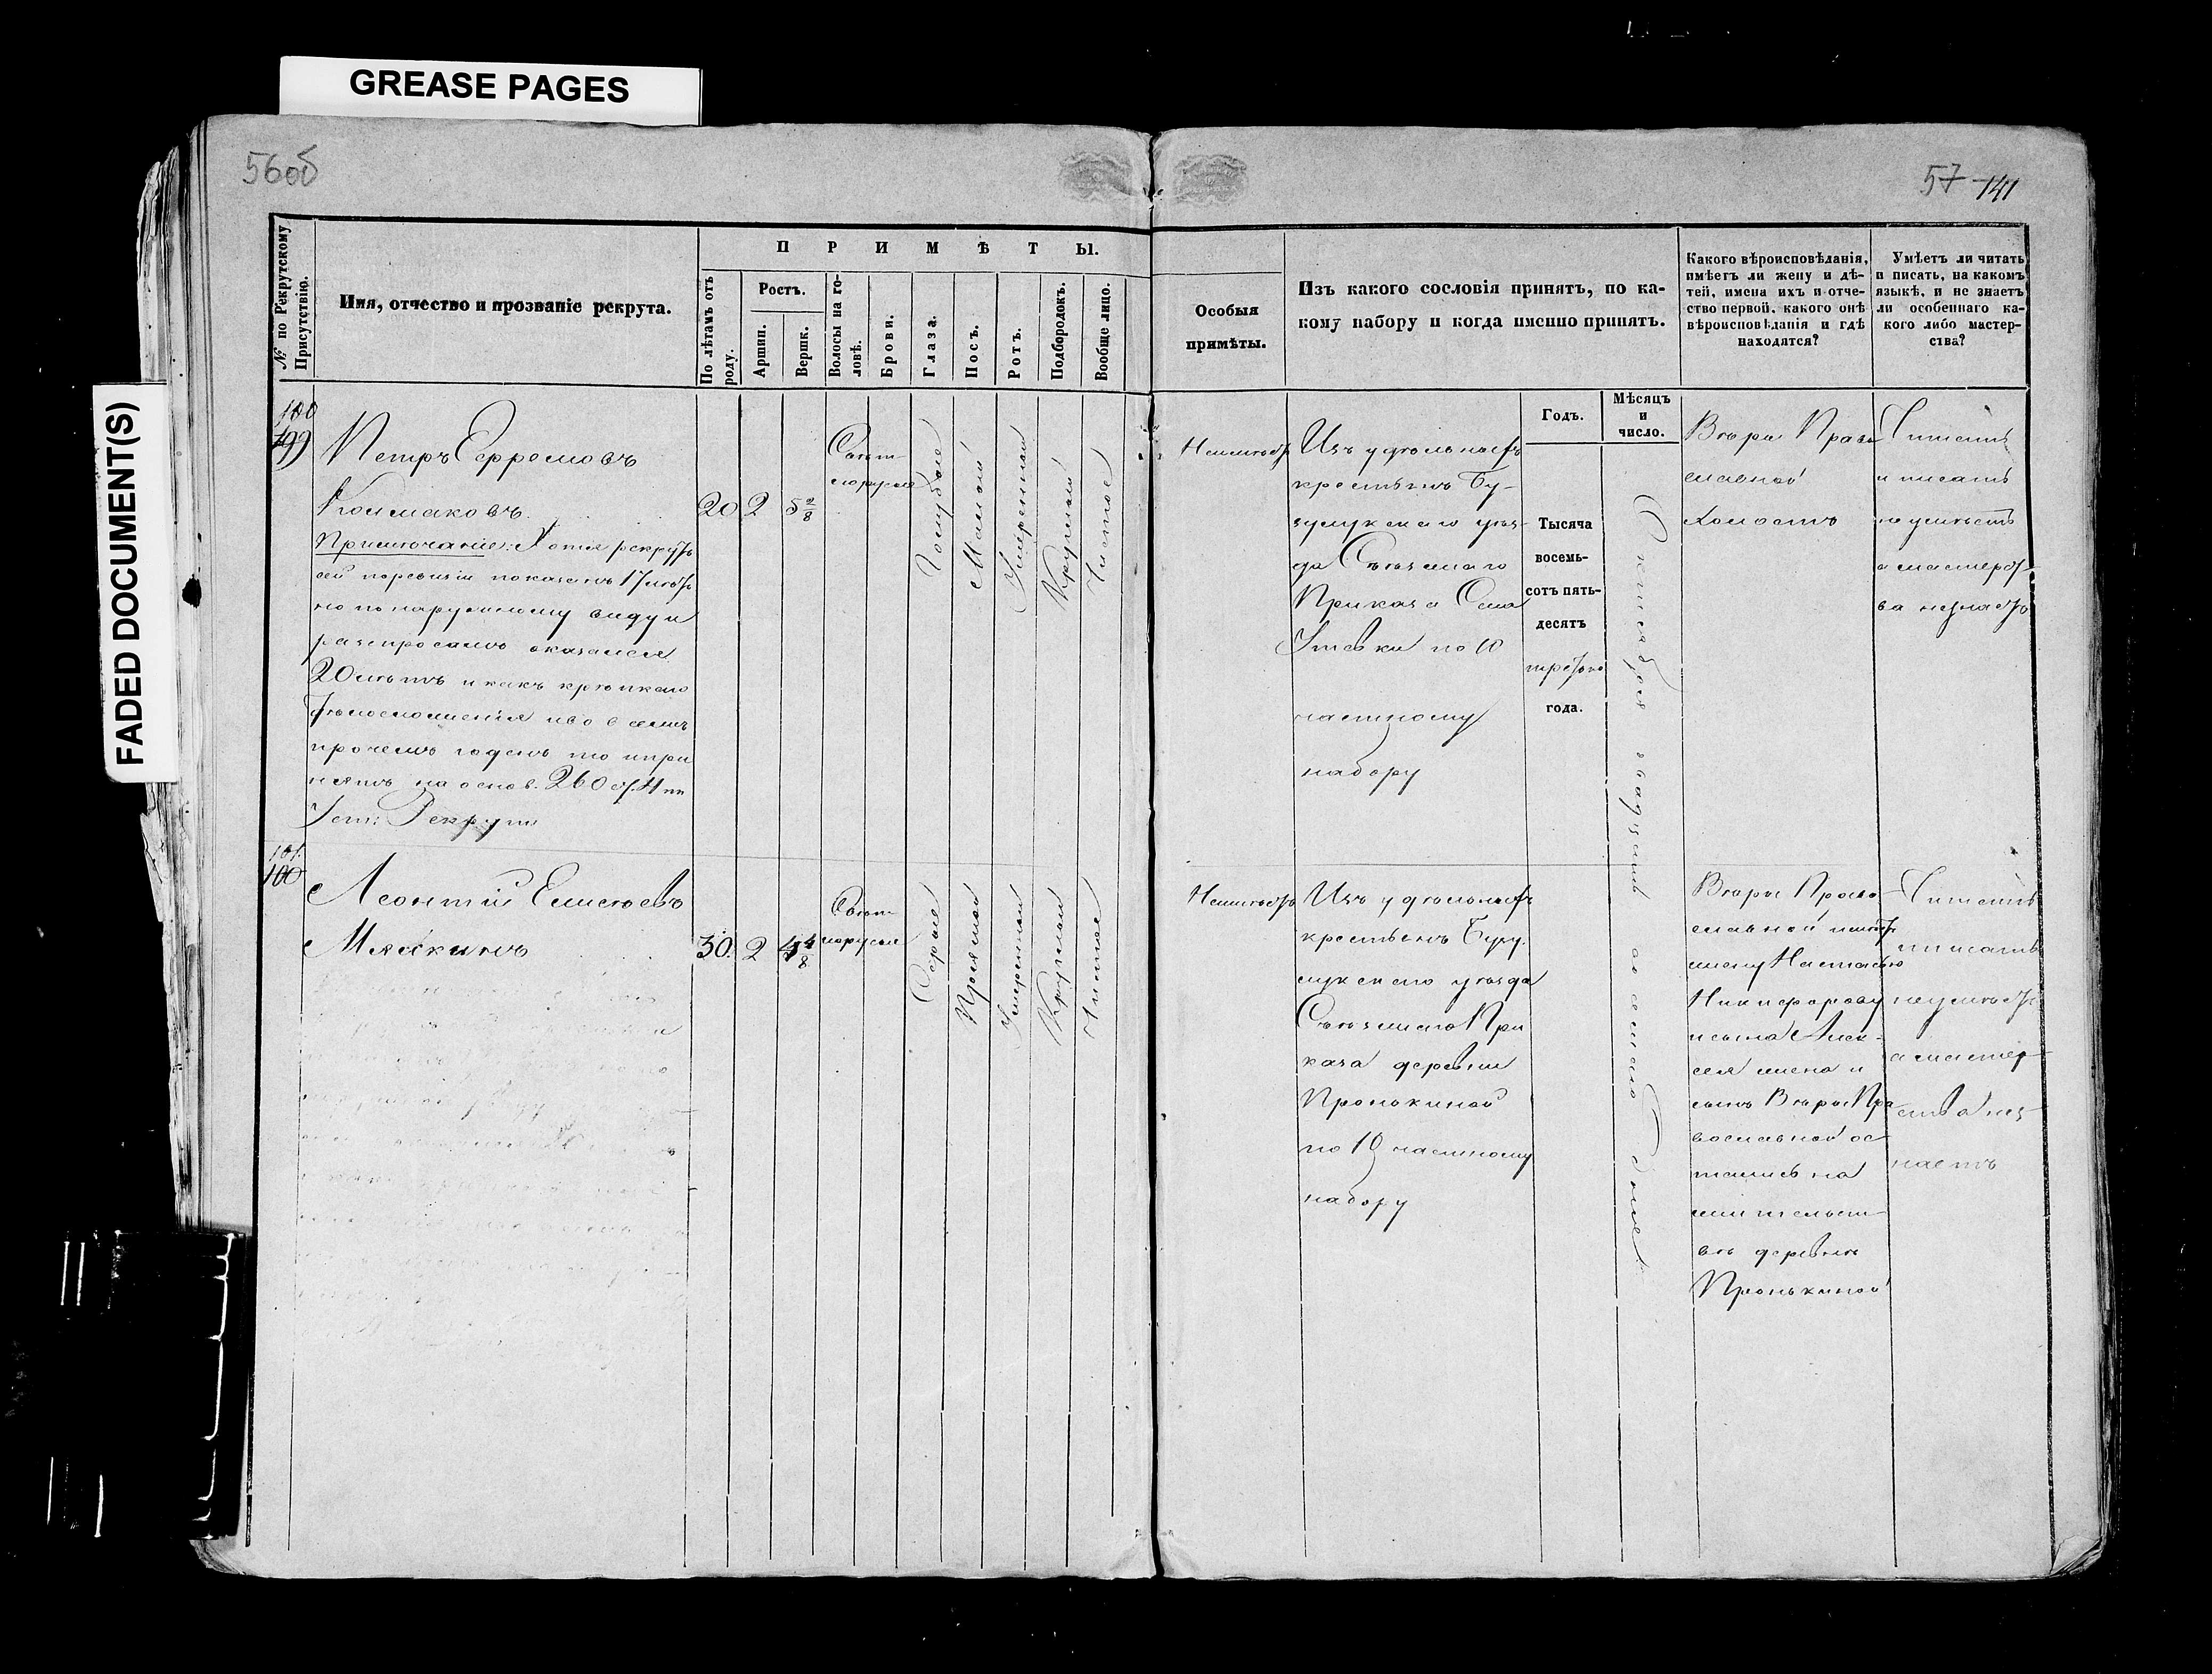 GREASE PAGES
FADED DOCUMENT(S)
56об
57 141
№ по Рекрутскому Присутствію.
Имя, отчество и прозваніе рекрута.
ПРИМѢТЫ.
По лѣтамъ отъ роду.
Ростъ.
Аршин.
Вершк.
Волосы на головѣ.
Брови.
Глаза.
Носъ.
Ротъ.
Подбородокъ.
Вообще лицо.
Особыя
примѣты.
Изъ какого сословія принятъ, по ка-
кому набору и когда именно принятъ.
Какого вѣроисповѣданія,
имѣетъ ли жену и дѣ-
тей, имена ихъ и отче-
ство первой, какого онѣ
вѣроисповѣданія и гдѣ
находятся?
Умѣетъ ли читать
и писать, на какомъ
языкѣ, и не знаетъ
ли особеннаго ка-
кого либо мастер-
ства?
Годъ.
Мѣсяцъ
и
число.
100
99
Петръ Ефремовъ
Колмаковъ
Примѣчаніе: Хотя рекрутъ
сей поревизіи показанъ 17 лѣтъ
но по наружному виду и
разспросамъ оказался
20 лѣтъ и какъ крѣпкаго
тѣлосложенія иво всемъ
прочемъ годенъ то и при
нятъ на основ. 260 ст. 4 пп
Уст: Рекрут
20
2
5 2/8
Свѣт
лорусые
Голубые
Малый
Умѣренный
Круглый
Чистое
Неимѣетъ
Изъ удѣльныхъ
крестьянъ Бу-
зулукскаго уѣз-
да Съѣзжаго
Приказа Села
Утевки по 10
частному
набору
Тысяча
восемь-
сотъ пять-
десятъ
третьяго
года.
Октября двадцать восьмого дня
Вѣры Право
славной
холостъ
Читать
и писать
неумѣетъ
а мастерст
ва незнаетъ
101.
100
Леонтій Елисѣевъ
Мяскинъ
30.
2
4 4/8
Свѣт
лорусые
Сѣрые
Прямой
Умѣренный
Круглый
Чистое
Неимѣетъ
Изъ удѣльныхъ
крестьянъ Бузу
лукскаго уѣзда
Съѣзжаго При
каза деревни
Пронькиной
по 10 частному
набору
Вѣры Право
славной имѣетъ
жену Настасью
Никифорову
и сына Алек-
сѣя жена и
сынъ Вѣры Пра
вославной ос
тались на
жительст
вѣ деревнѣ
Пронькиной
Читать
и писать
неумѣетъ
а мастер
ства нез
наетъ